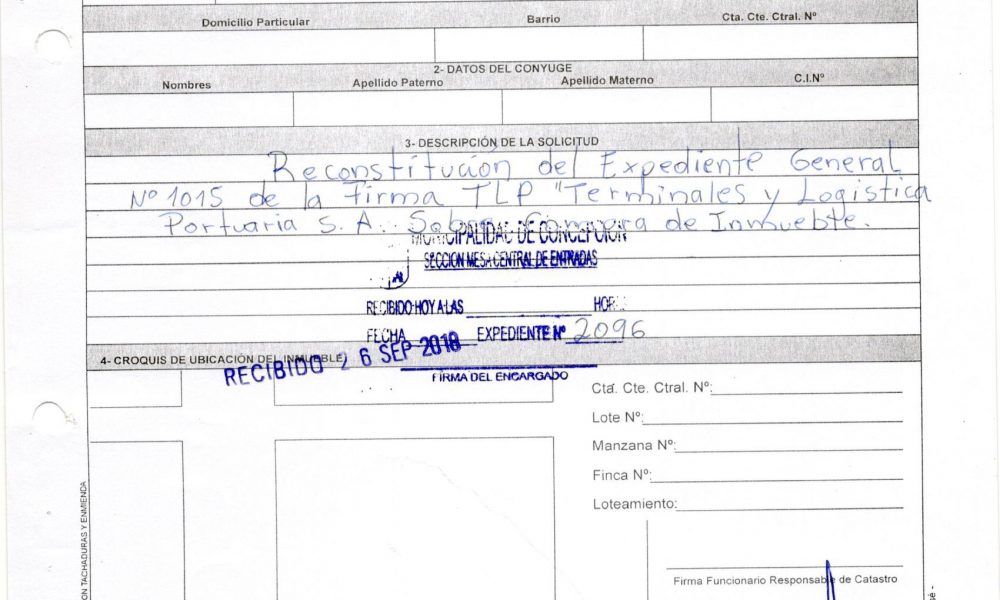 Domicilio Particular Barrio Cta. Cte. Ctral. Nº
2- DATOS DEL CONYUGE
Nombres Apellido Paterno Apellido Materno C.I.Nº
3- DESCRIPCIÓN DE LA SOLICITUD
Reconstitución del Expediente General
Nº 1015 de la firma TLP "Terminales y Logistica
Portuaria S. A. Sobre Compra de Inmueble.
MUNICIPALIDAD DE CONCEPCION
SECCION MESA CENTRAL DE ENTRADAS
RECIBIDO HOY A LAS HORAS
FECHA EXPEDIENTE Nº 2096
4- CROQUIS DE UBICACIÓN DEL INMUEBLE
RECIBIDO 26 SEP 2018
FIRMA DEL ENCARGADO
Cta. Cte. Ctral. Nº:
Lote Nº:
Manzana Nº:
Finca Nº:
Loteamiento:
Firma Funcionario Responsable de Catastro
TACHADURAS Y ENMIENDA